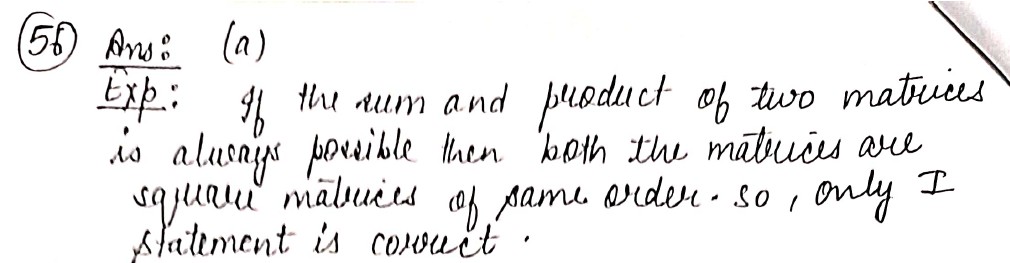 56 Ans: (a)
Exp: If the sum and product of two matrices
is always possible then both the matrices are
square matrices of same order. so, only I
statement is correct.